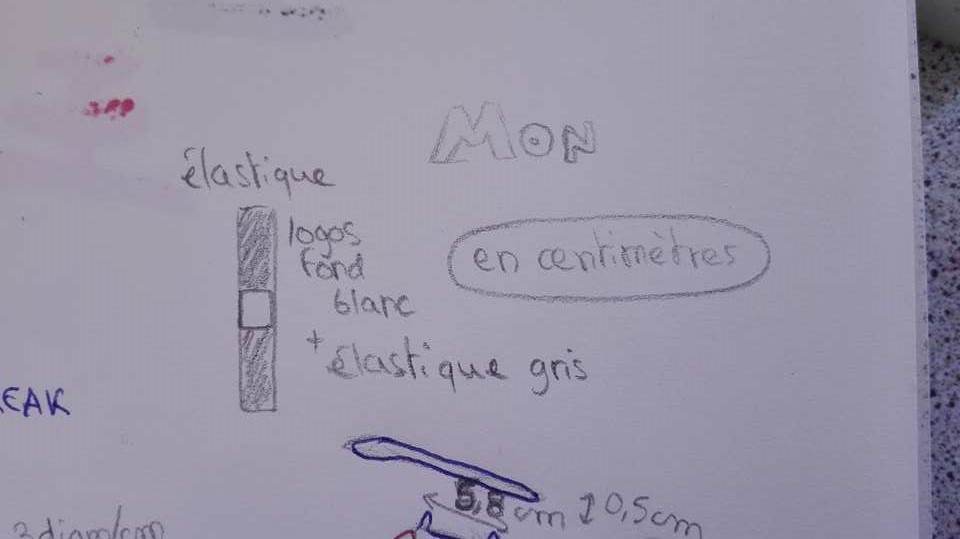 MON
élastique
logos
fond
blanc
+
élastique gris
en centimètres
EAK
5,8 cm 0,5 cm